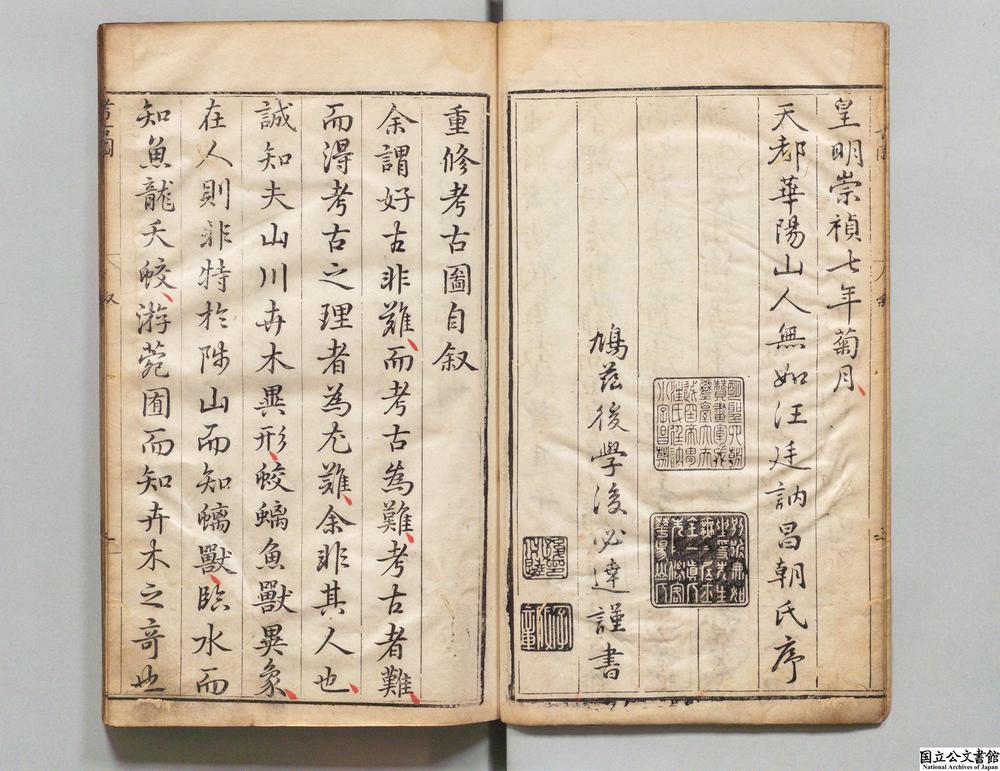 皇明崇禎七年菊月
天都華陽山人無如汪廷訥昌朝氏序
鳩茲後學後必達謹書
重修考古圖自叙
余謂好古非難而考古為難考古者難
而得考古之理者為尤難余非其人也
誠知夫山川卉木異形蛟螭魚獸異象
在人則非特於陟山而知螭獸臨水而
知魚龍夭蛟游菀囿而知卉木之奇也
国立公文書館
National Archives of Japan